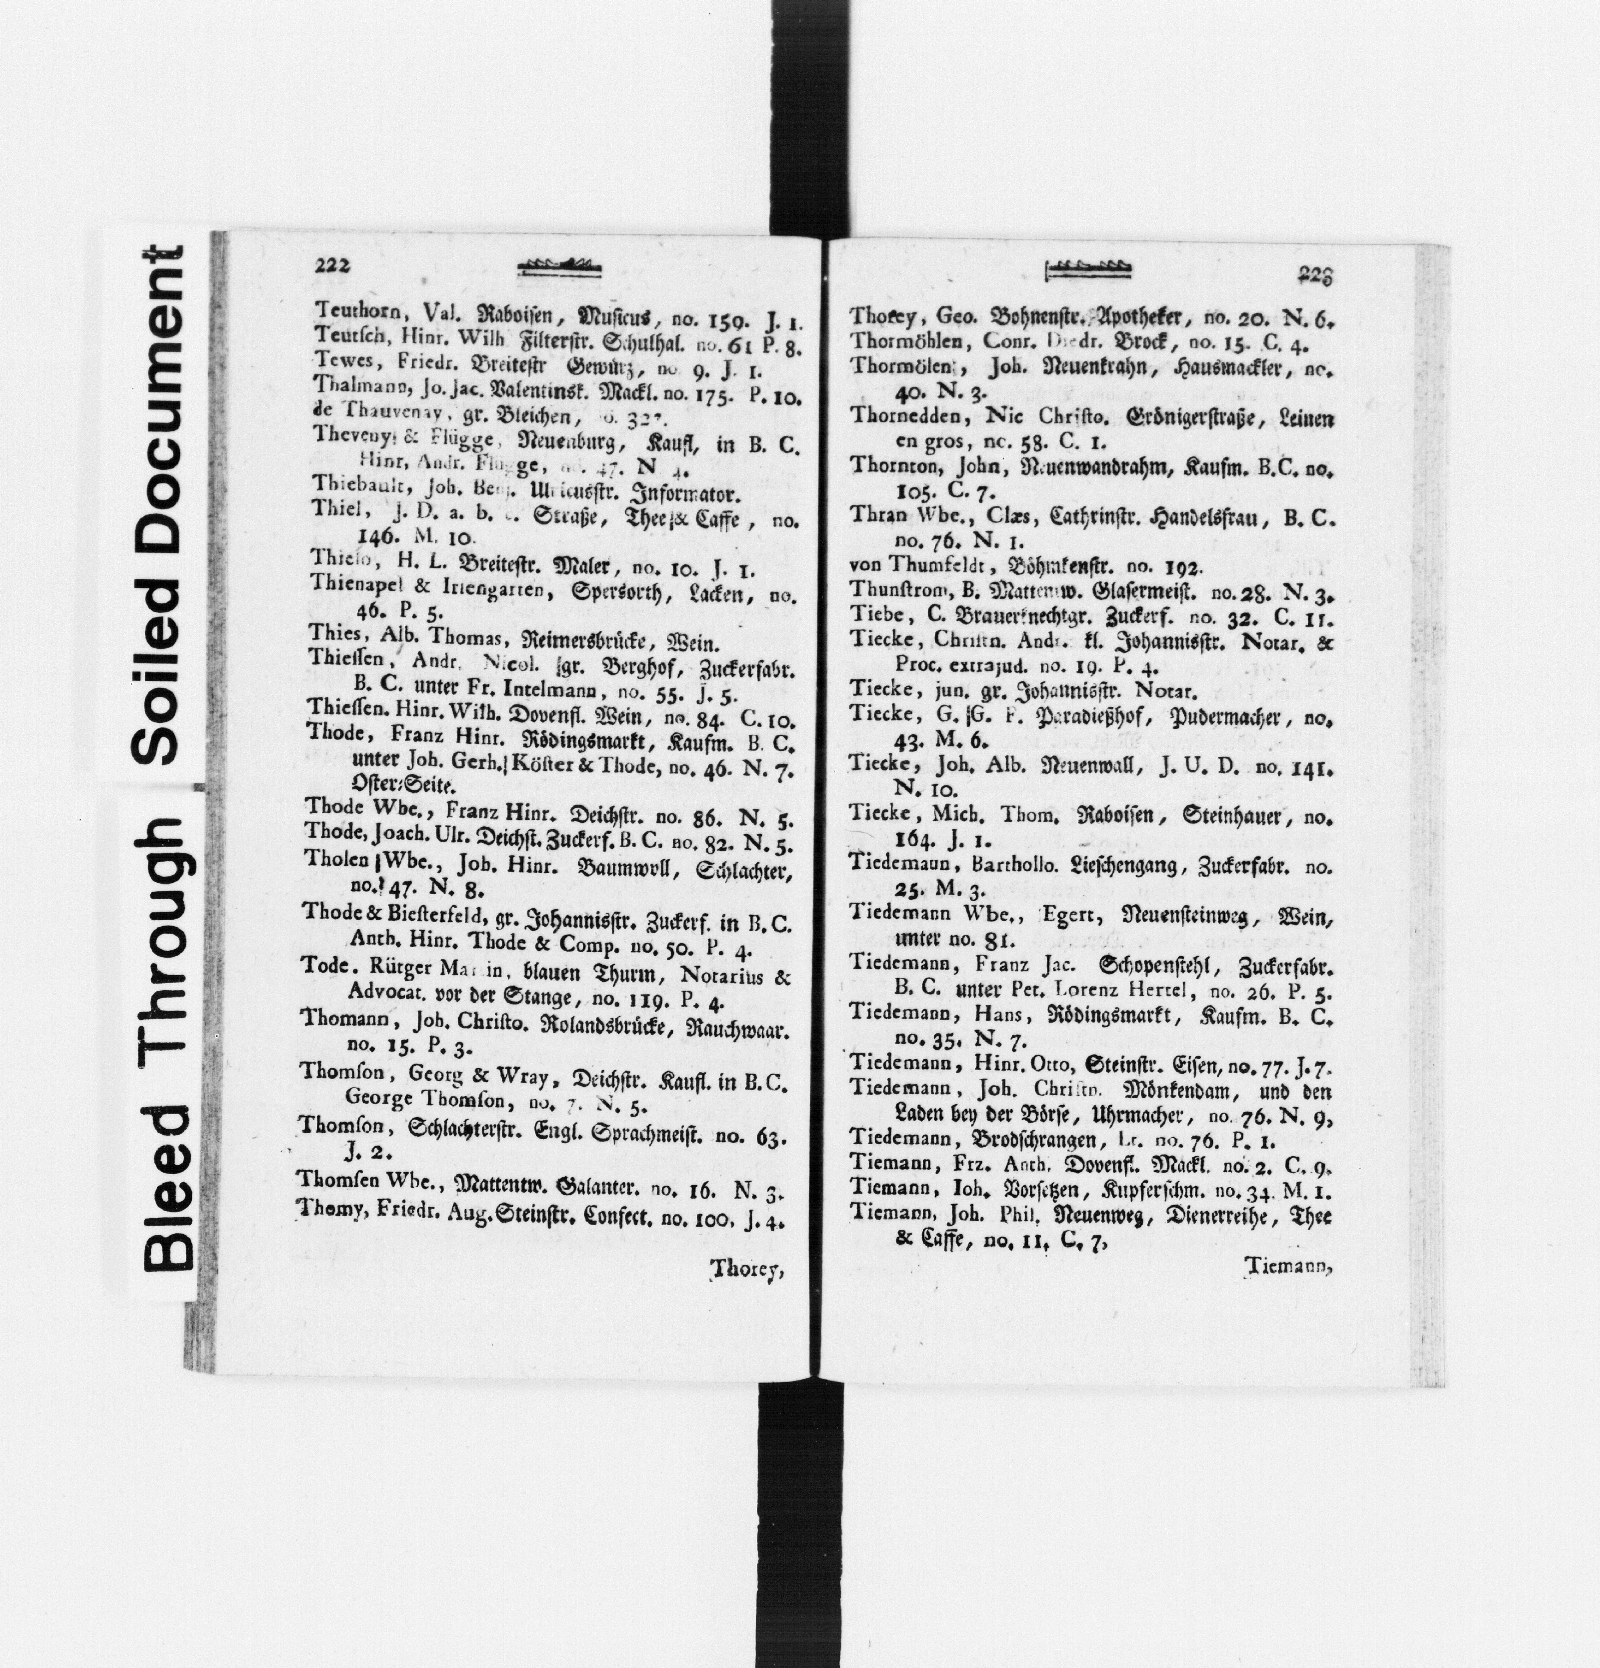 Bleed Through Soiled Document
222
Teuthorn, Val. Raboisen, Musicus, no. 159. J. 1.
Teutsch, Hinr. Wilh Filterstr. Schulhal. no. 61 P. 8.
Tewes, Friedr. Breitestr Gewürz, no 9. J. 1.
Thalmann, Jo. Jac. Valentinsk. Mackl. no. 175. P. 10.
de Thauvenay, gr. Bleichen,
Theveny & Flügge, Neuenburg, Kaufl, in B. C.
Hinr, Andr. Flügge, no. 47. N 4.
Thiebault, Joh. Benj. Ulricusstr. Informator.
Thiel, J. D. a. b. Straße, Thee & Caffe, no.
146. M. 10.
Thielo, H. L. Breitestr. Maler, no. 10. J. 1.
Thienapel & Iriengarten, Spersorth, Lacken, no.
46. P. 5.
Thies, Alb. Thomas, Reimersbrücke, Wein.
Thiessen, Andr. Nicol. gr. Berghof, Zuckerfabr.
B. C. unter Fr. Intelmann, no. 55. J. 5.
Thiessen. Hinr. Wilh. Dovenfl. Wein, no. 84. C. 10.
Thode, Franz Hinr. Rödingsmarkt, Kaufm. B. C.
unter Joh. Gerh. Köster & Thode, no. 46. N. 7.
Oster-Seite.
Thode Wbe., Franz Hinr. Deichstr. no. 86. N. 5.
Thode, Joach. Ulr. Deichst. Zuckerf. B. C. no. 82. N. 5.
Tholen Wbe., Joh. Hinr. Baumwoll, Schlachter,
no. 47. N. 8.
Thode & Biesterfeld, gr. Johannisstr. Zuckerf. in B. C.
Anth. Hinr. Thode & Comp. no. 50. P. 4.
Tode. Rütger Martin, blauen Thurm, Notarius &
Advocat. vor der Stange, no. 119. P. 4.
Thomann, Joh. Christo. Rolandsbrücke, Rauchwaar.
no. 15. P. 3.
Thomson, Georg & Wray, Deichstr. Kaufl. in B. C.
George Thomson, no. 7. N. 5.
Thomson, Schlachterstr. Engl. Sprachmeist. no. 63.
J. 2.
Thomsen Wbe., Mattentw. Galanter. no. 16. N. 3.
Thomy, Friedr. Aug. Steinstr. Confect. no. 100, J. 4.
Thorey,
223
Thorey, Geo. Bohnenstr. Apotheker, no. 20. N. 6.
Thormöhlen, Conr. Diedr. Brock, no. 15. C. 4.
Thormölen, Joh. Neuenkrahn, Hausmackler, no.
40. N. 3.
Thornedden, Nic Christo. Grönigerstraße, Leinen
en gros, no. 58. C. 1.
Thornton, John, Neuenwandrahm, Kaufm. B. C. no.
105. C. 7.
Thran Wbe., Clæs, Cathrinstr. Handelsfrau, B. C.
no. 76. N. 1.
von Thumfeldt, Böhmkenstr. no. 192.
Thunstrom, B. Mattentw. Glasermeist. no. 28. N. 3.
Tiebe, C. Brauerknechtgr. Zuckerf. no. 32. C. 11.
Tiecke, Christn. Andr. kl. Johannisstr. Notar. &
Proc. extrajud. no. 19. P. 4.
Tiecke, jun. gr. Johannisstr. Notar.
Tiecke, G. G. F. Paradießhof, Pudermacher, no.
43. M. 6.
Tiecke, Joh. Alb. Neuenwall, J. U. D. no. 141.
N. 10.
Tiecke, Mich. Thom. Raboisen, Steinhauer, no.
164. J. 1.
Tiedemann, Barthollo. Lieschengang, Zuckerfabr. no.
25. M. 3.
Tiedemann Wbe., Egert, Neuensteinweg, Wein,
unter no. 81.
Tiedemann, Franz Jac. Schopenstehl, Zuckerfabr.
B. C. unter Pet. Lorenz Hertel, no. 26. P. 5.
Tiedemann, Hans, Rödingsmarkt, Kaufm. B. C.
no. 35. N. 7.
Tiedemann, Hinr. Otto, Steinstr. Eisen, no. 77. J. 7.
Tiedemann, Joh. Christn. Mönkendam, und den
Laden bey der Börse, Uhrmacher, no. 76. N. 9,
Tiedemann, Brodschrangen, Lt. no. 76. P. 1.
Tiemann, Frz. Anth. Dovenfl. Mackl. no. 2. C. 9.
Tiemann, Ioh. Vorsetzen, Kupferschm. no. 34. M. 1.
Tiemann, Joh. Phil. Neuenweg, Dienerreihe, Thee
& Caffe, no. 11. C. 7,
Tiemann,